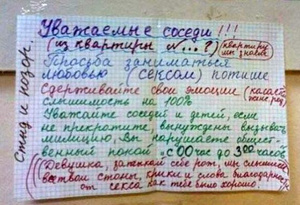 Стыд и позор,
Уважаемые соседи!!!
(из квартиры №...?) (квартиру мы знаем)
Просьба заниматься
любовью (сексом) потише
Сдерживайте свои эмоции (касается
слышимость на 100%
Уважайте соседей и детей, если
не прекратите, вынуждены вызвать
милицию. Вы нарушаете общест-
венный покой с 00 час до 3.00 часов
(Девушка, заткни себе рот, мы слышим
все твои стоны, крики и слова благодарности
от секса как тебе было хорошо.